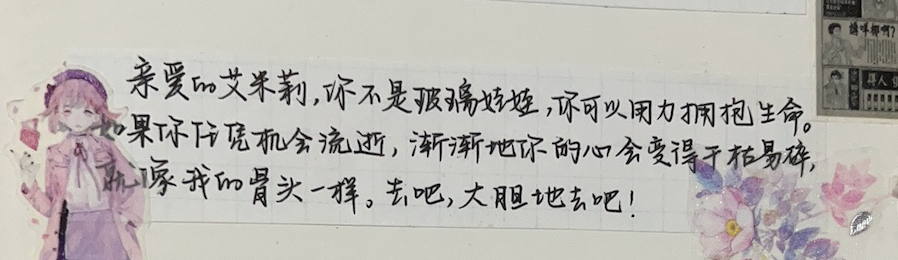 亲爱的艾米莉,你不是玻璃娃娃,你可以用力拥抱生命。
如果你任凭机会流逝,渐渐地你的心会变得干枯易碎,
就像我的骨头一样。去吧,大胆地去吧!